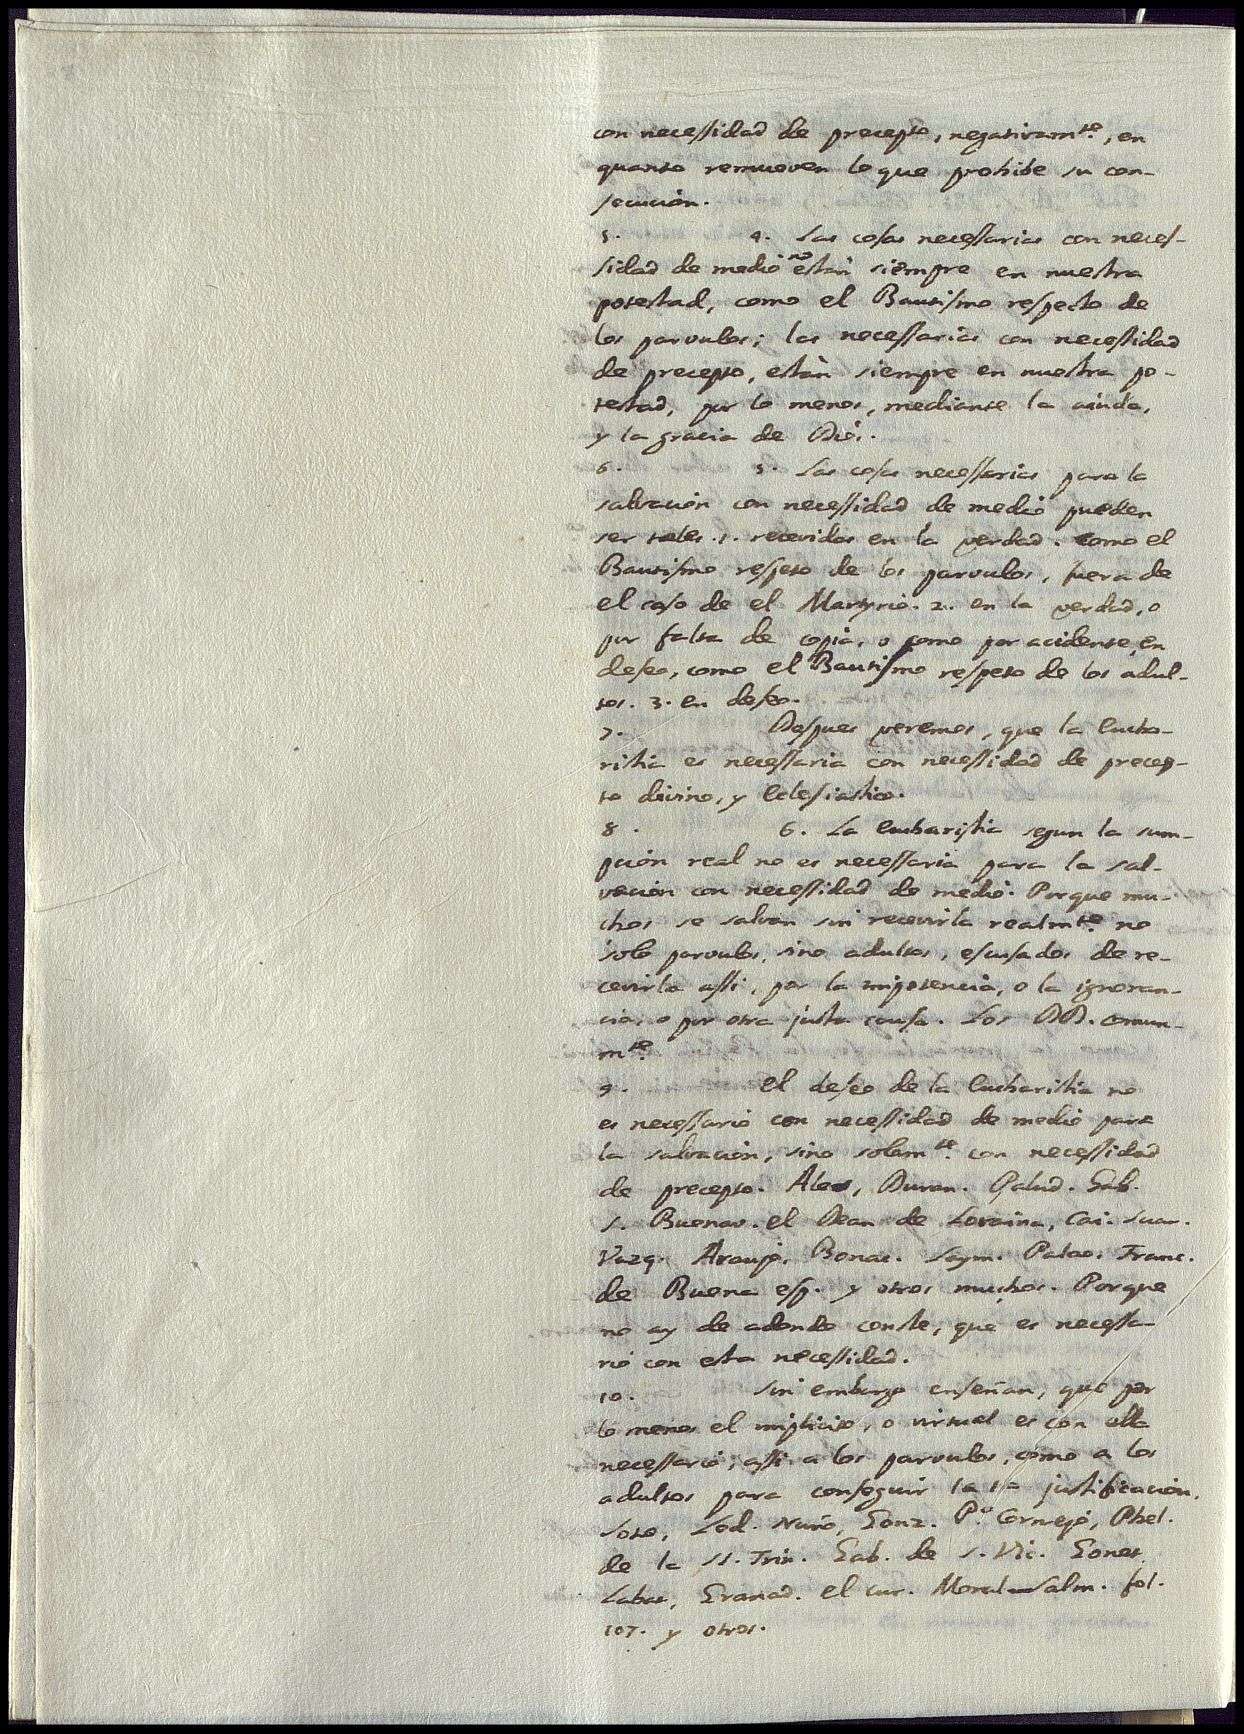 con necessidad de precepto, negativam.te, en
quanto remueven lo que prohibe su con-
secucion.
5. 4. Las cosas necessarias con neces-
sidad de medio no están siempre en nuestra
potestad, como el Bautismo respecto de
los parvulos; las necessarias con necessidad
de precepto, están siempre en nuestra po-
testad, por lo menos, mediante la aiuda,
y la gracia de Dios.
6. 5. Las cosas necessarias para la
salvacion con necessidad de medio pueden
ser tales. 1. recevidas en la verdad. como el
Bautismo respeto de los parvulos, fuera de
el caso de el Martyrio. 2. en la verdad, o
por falta de copia, o como por acidente, en
deseo, como el Bautismo respeto de los adul-
tos. 3. en deseo.
7. Despues veremos, que la Eucha-
ristia es necessaria con necessidad de precep-
to divino, y Eclesiastico.
8. 6. La Eucharistia segun la sum-
pcion real no es necessaria para la sal-
vacion con necessidad de medio. Porque mu-
chos se salvan sin recevirla realm.te no
solo parvulos, sino adultos, escusados de re-
cevirla assi, por la impotencia, o la ignoran-
cia, o por otra justa causa. Los DD. comun-
m.te
9. El deseo de la Eucharistia no
es necessario con necessidad de medio para
la salvacion, sino solam.te con necessidad
de precepto. Ales, Duran. Palud. Gab.
S. Buenav. el Dean de Lovaina, Cai. Suar.
Vazq. Araujo, Bonac. Laym. Palao. Franc.
de Buena esp. y otros muchos. Porque
no ay de adonde conste, que es necessa-
rio con esta necessidad.
10. Sin embargo enseñan, que por
lo menos el implicito, o virtual es con ella
necessario, assi a los parvulos, como a los
adultos para conseguir la 1.a justificacion.
Soto, Led. Nuño, Gonz. P.o Cornejo, Phel.
de la SS. Trin. Gab. de S. Vic. Gonet
Labat, Granad. el Cur. Moral Salm. fol.
107. y otros.